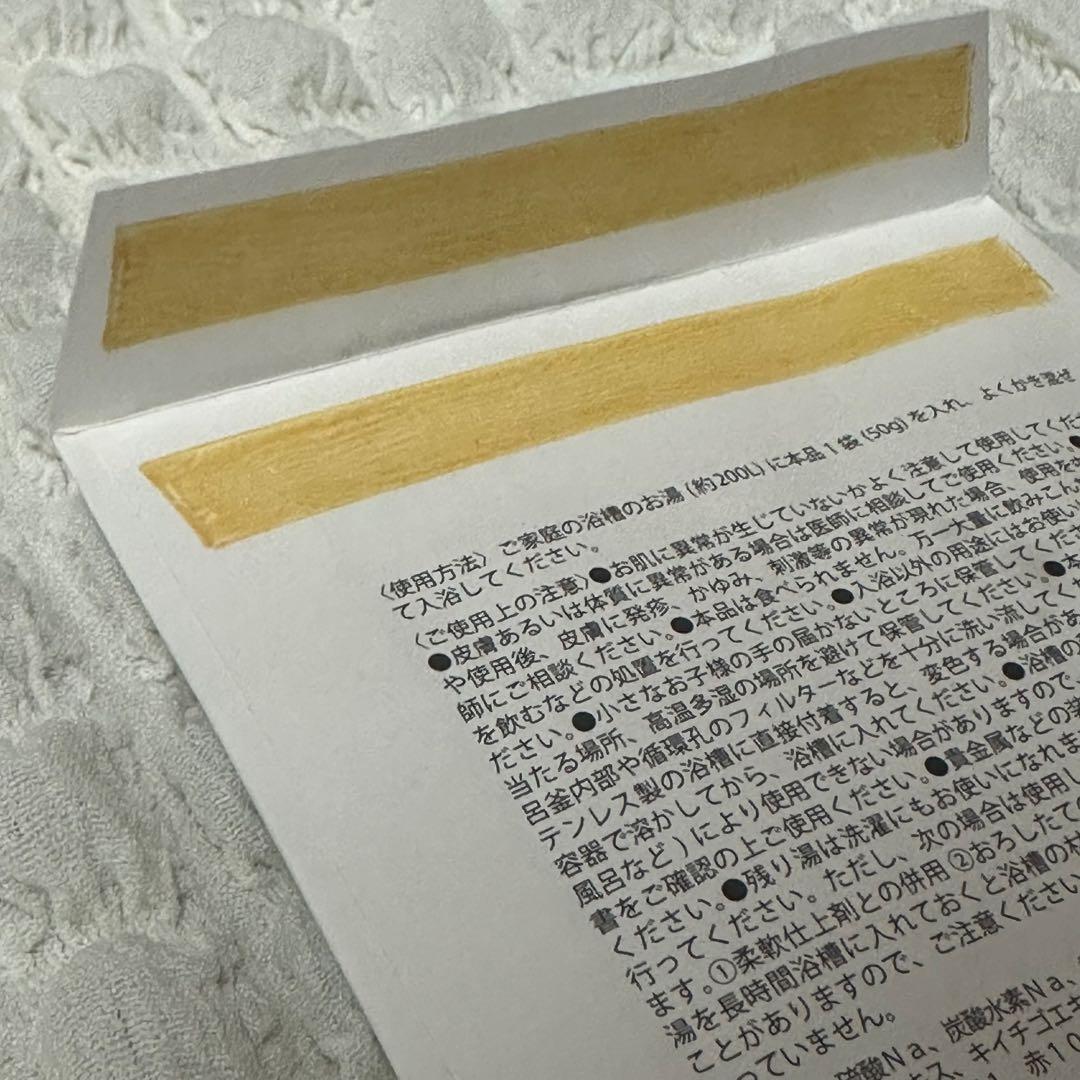 〈使用方法〉ご家庭の浴槽のお湯(約200L)に本品1袋(50g)を入れ、よくかき混ぜ
て入浴してください。
〈ご使用上の注意〉●お肌に異常が生じていないかよく注意して使用してくだ
●皮膚あるいは体質に異常がある場合は医師に相談してご使用ください。●
や使用後、皮膚に発疹、かゆみ、刺激等の異常が現れた場合、使用を
師にご相談ください。●本品は食べられません。万一大量に飲みこん
を飲むなどの処置を行ってください。●入浴以外の用途にはお使い
ださい。●小さなお子様の手の届かないところに保管して
当たる場所、高温多湿の場所を避けて保管してください。●本
呂釜内部や循環孔のフィルターなどを十分に洗い流して
テンレス製の浴槽に直接付着すると、変色する場合が
容器で溶かしてから、浴槽に入れてください。●浴槽の
風呂など)により使用できない場合がありますので、
書をご確認の上ご使用ください。●貴金属などの
ください。●残り湯は洗濯にもお使いになれま
行ってください。ただし、次の場合は使用し
ます。①柔軟仕上剤との併用②おろしたての
湯を長時間浴槽に入れておくと浴槽の
ことがありますので、ご注意ください
っていません。
硫酸Na、炭酸水素Na、
ス、キイチゴエキ
赤10